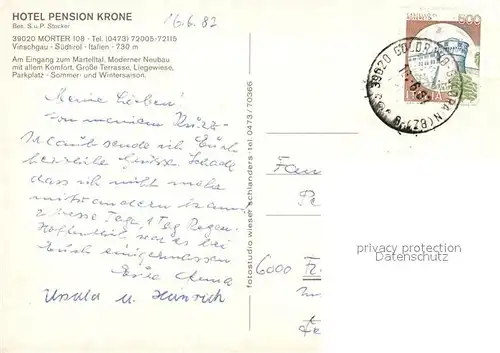 HOTEL PENSION KRONE
16.6.82
Bes. S.u.P. Stocker
39020 MORTER 108 - Tel. (0473) 72005-72115
Vinschgau - Südtirol - Italien - 730 m
Am Eingang zum Martelltal. Moderner Neubau
mit allem Komfort. Große Terrasse, Liegewiese,
Parkplatz - Sommer- und Wintersaison.
Meine Lieben!
Von meinem Kurz-
Urlaub sende ich Euch
herzliche Grüsse. Schade
dass ich nicht mehr
2 Tage 1 Tag Regen.
Hoffentlich war es bei
Euch einigermassen
Eure
Ursula u. Heinrich
fotostudio wieser schlanders-tel. 0473/70366
500
ITALIA
39020 GOLDRAIN
(BZ)
Fam
6000 F
privacy protection
Datenschutz